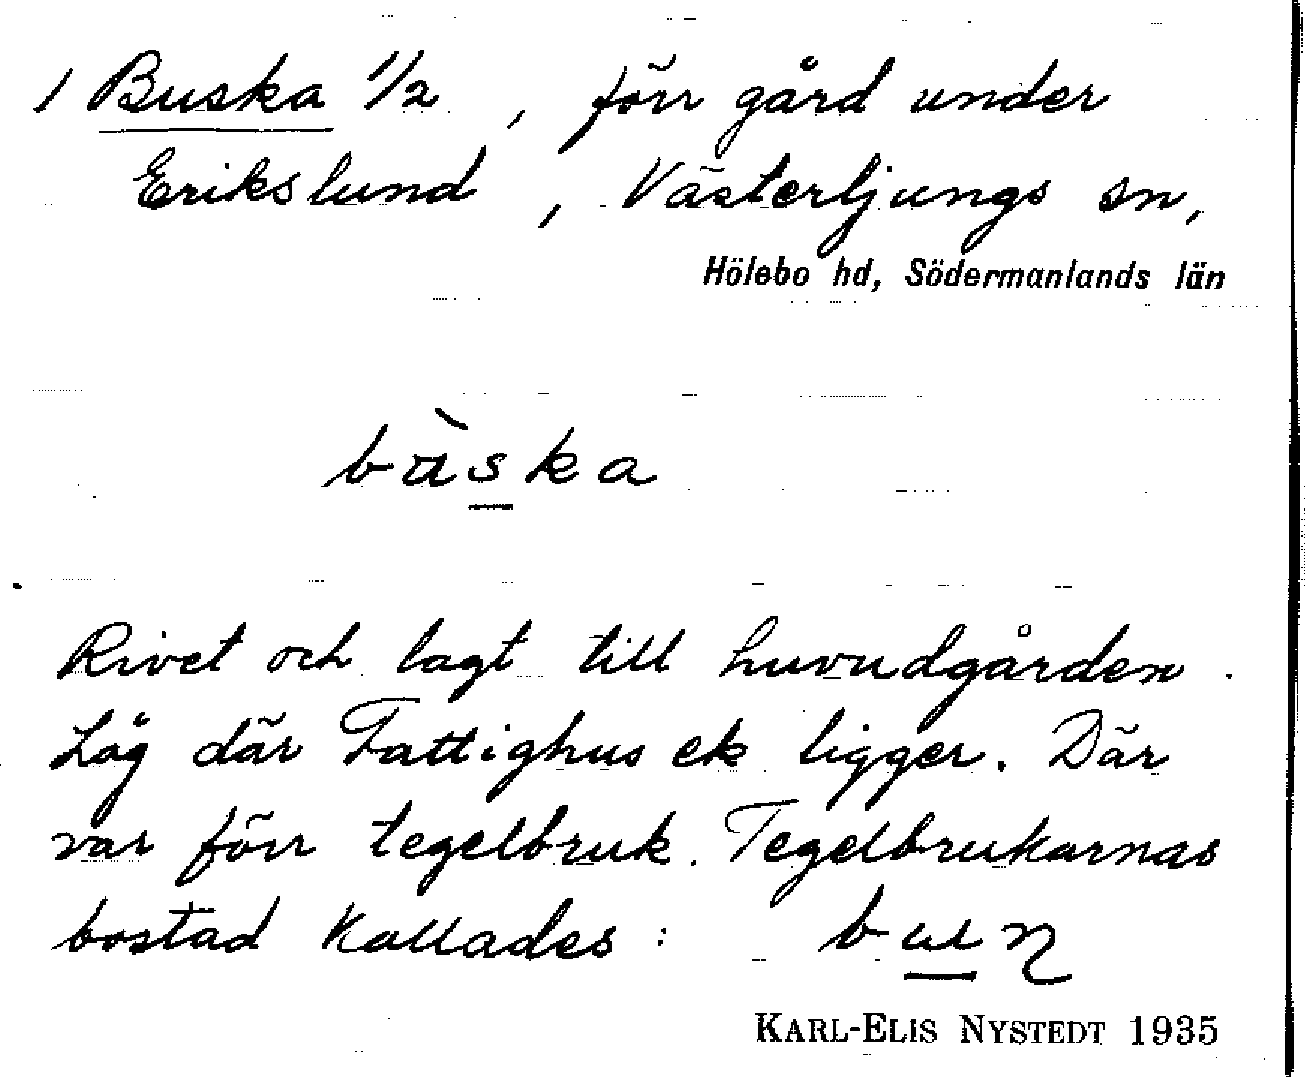 1 Buska 1/2, förr gård under
Erikslund, Västerljungs sn,
Hölebo hd, Södermanlands län
bùska
Rivet och lagt till huvudgården.
Låg där Fattighus ek ligger. Där
var förr tegelbruk. Tegelbrukarnas
bostad kallades:
KARL-ELIS NYSTEDT 1935